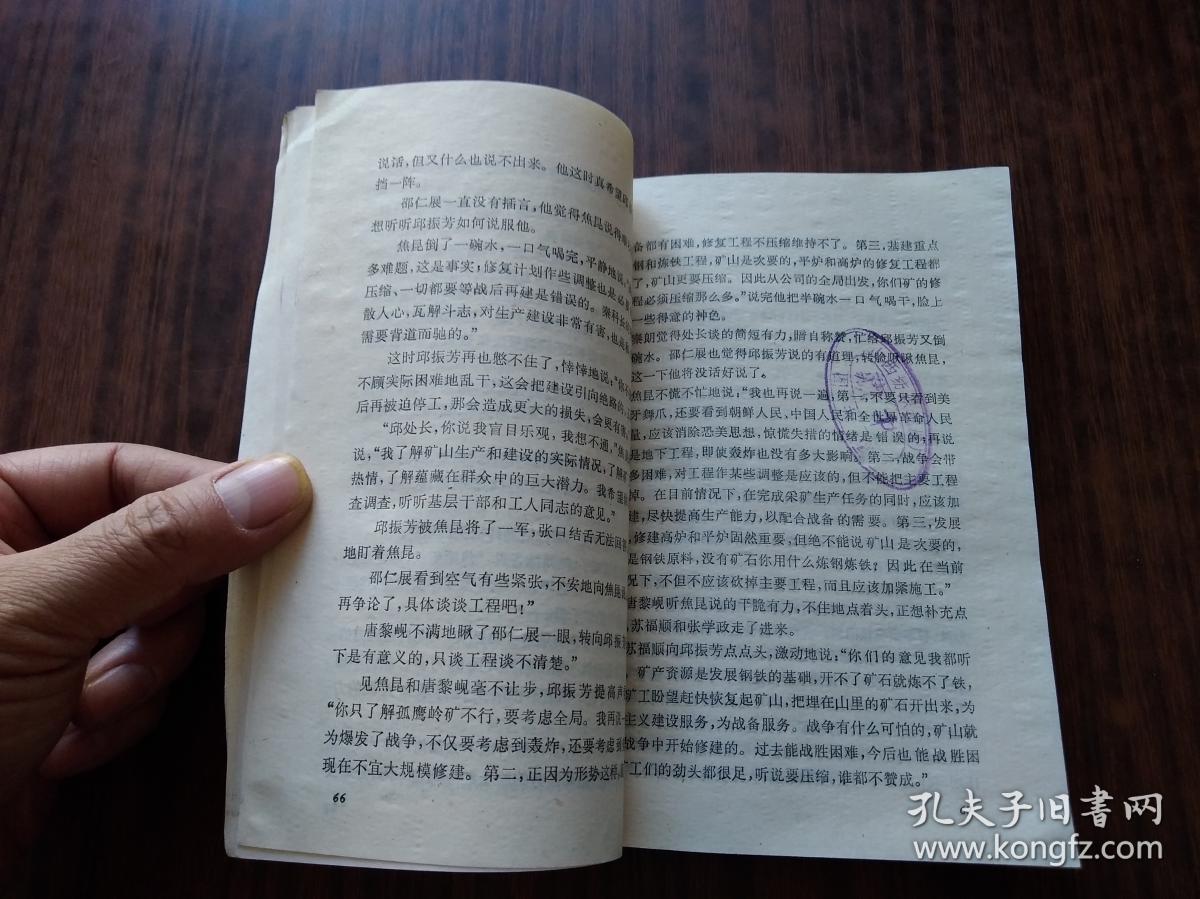 说话，但又什么也说不出来。他这时真希望
挡一阵。
邵仁展一直没有插言，他觉得焦昆说得
想听听邱振芳如何说服他。
焦昆倒了一碗水，一口气喝完，平静地说
多难题，这是事实；修复计划作些调整也是必
压缩、一切都要等战后再建是错误的。秦科长
散人心，瓦解斗志，对生产建设非常有害，也是
需要背道而驰的。”
这时邱振芳再也憋不住了，悻悻地说：“你
不顾实际困难地乱干，这会把建设引向绝路的
后再被迫停工，那会造成更大的损失，会更有
“邱处长，你说我盲目乐观，我想不通，”焦
说，“我了解矿山生产和建设的实际情况，了解
热情，了解蕴藏在群众中的巨大潜力。我希望
查调查，听听基层干部和工人同志的意见。”
邱振芳被焦昆将了一军，张口结舌无法回
地盯着焦昆。
邵仁展看到空气有些紧张，不安地向焦昆
再争论了，具体谈谈工程吧！”
唐黎岘不满地瞅了邵仁展一眼，转向邱振
下是有意义的，只谈工程谈不清楚。”
见焦昆和唐黎岘毫不让步，邱振芳提高声
“你只了解孤鹰岭矿不行，要考虑全局。我再说
为爆发了战争，不仅要考虑到轰炸，还要考虑
现在不宜大规模修建。第二，正因为形势这样，
66
备都有困难，修复工程不压缩维持不了。第三，基建重点
钢和炼铁工程，矿山是次要的，平炉和高炉的修复工程都
了，矿山更要压缩。因此从公司的全局出发，你们矿的修
程必须压缩那么多。”说完他把半碗水一口气喝干，脸上
一些得意的神色。
秦朗觉得处长谈的简短有力，暗自称赞，忙给邱振芳又倒
碗水。邵仁展也觉得邱振芳说的有道理，转脸瞅瞅焦昆，
这一下他将没话好说了。
焦昆不慌不忙地说，“我也再说一遍，第一，不要只看到美
牙舞爪，还要看到朝鲜人民、中国人民和全世界革命人民
量，应该消除恐美思想，惊慌失措的情绪是错误的；再说
是地下工程，即使轰炸也没有多大影响。第二，战争会带
多困难，对工程作某些调整是应该的，但不能把主要工程
卓。在目前情况下，在完成采矿生产任务的同时，应该加
建，尽快提高生产能力，以配合战备的需要。第三，发展
，修建高炉和平炉固然重要，但绝不能说矿山是次要的，
是钢铁原料，没有矿石你用什么炼钢炼铁？因此在当前
况下，不但不应该砍掉主要工程，而且应该加紧施工。”
唐黎岘听焦昆说的干脆有力，不住地点着头，正想补充点
苏福顺和张学政走了进来。
苏福顺向邱振芳点点头，激动地说：“你们的意见我都听
矿产资源是发展钢铁的基础，开不了矿石就炼不了铁，
矿工盼望赶快恢复起矿山，把埋在山里的矿石开出来，为
主义建设服务，为战备服务。战争有什么可怕的，矿山就
战争中开始修建的。过去能战胜困难，今后也能战胜困
矿工们的劲头都很足，听说要压缩，谁都不赞成。”
孔夫子旧书网
www.kongfz.com